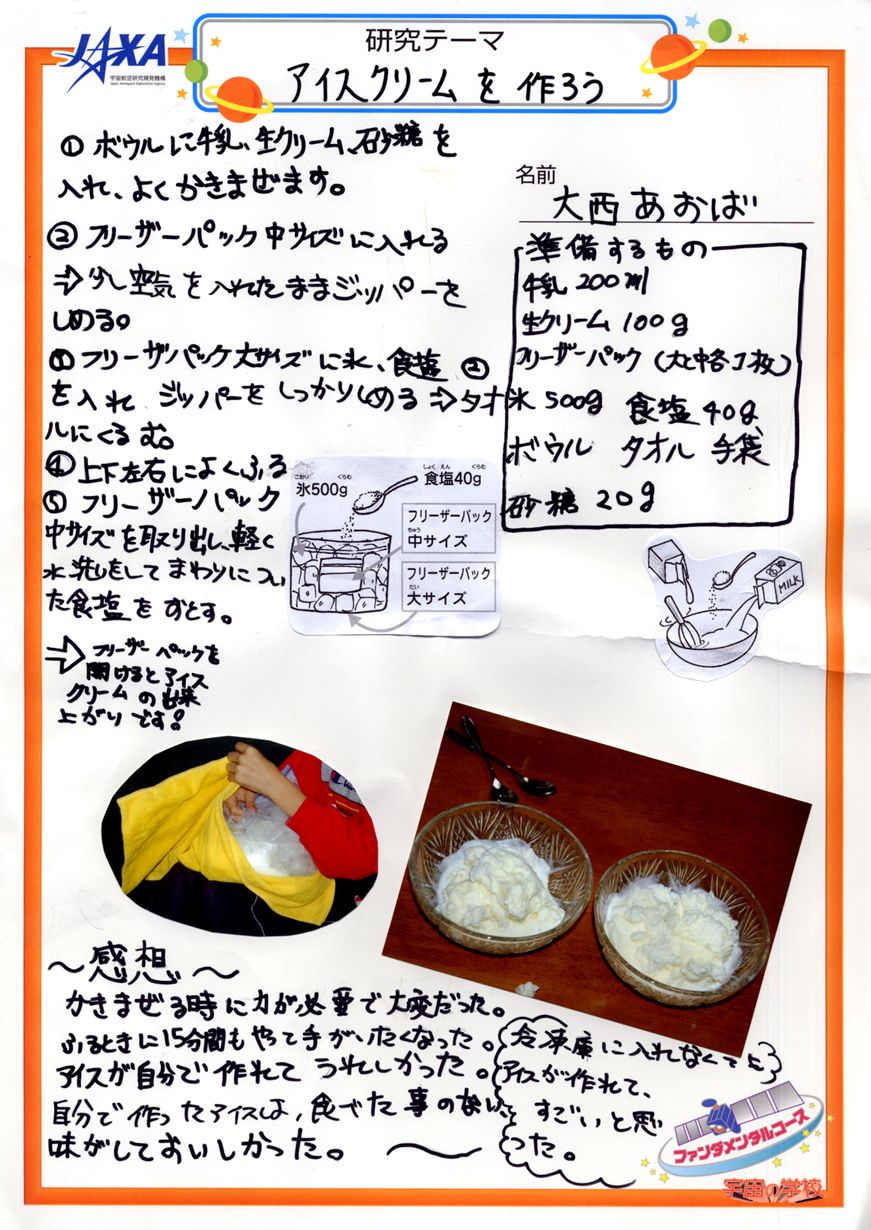 JAXA
宇宙航空研究開発機構
Japan Aerospace Exploration Agency
研究テーマ
アイスクリームを作ろう
① ボウルに牛乳、生クリーム、砂糖を
入れ、よくかきまぜます。
② フリーザーパック中サイズに入れる
⇒少し空気を入れたままジッパーを
しめる。
① フリーザパック大サイズに氷、食塩 ②
を入れ ジッパーをしっかりしめる⇒タオ
ルにくるむ。
④ 上下左右によくふる
⑤ フリーザーパック
中サイズを取り出し、軽く
水洗いをしてまわりについ
た食塩をおとす。
→ フリーザーパックを
開けるとアイス
クリームの出来
上がりです!
名前
大西あおば
準備するもの
牛乳 200ml
生クリーム 100g
フリーザーパック(大と中各1枚)
氷 500g 食塩 40g
ボウル タオル 手袋
砂糖 20g
こおり ぐらむ
氷500g
しょく えん ぐらむ
食塩40g
フリーザーパック
ちゅう
中サイズ
フリーザーパック
だい
大サイズ
MILK
〜感想〜
かきまぜる時に力が必要で大変だった。
ふるときに15分間もやって手がいたくなった。
アイスが自分で作れてうれしかった。
自分で作ったアイスは、食べた事のない
味がしておいしかった。
冷凍庫に入れなくても
アイスが作れて、
すごいと思
った。
ファンダメンタルコース
宇宙の学校